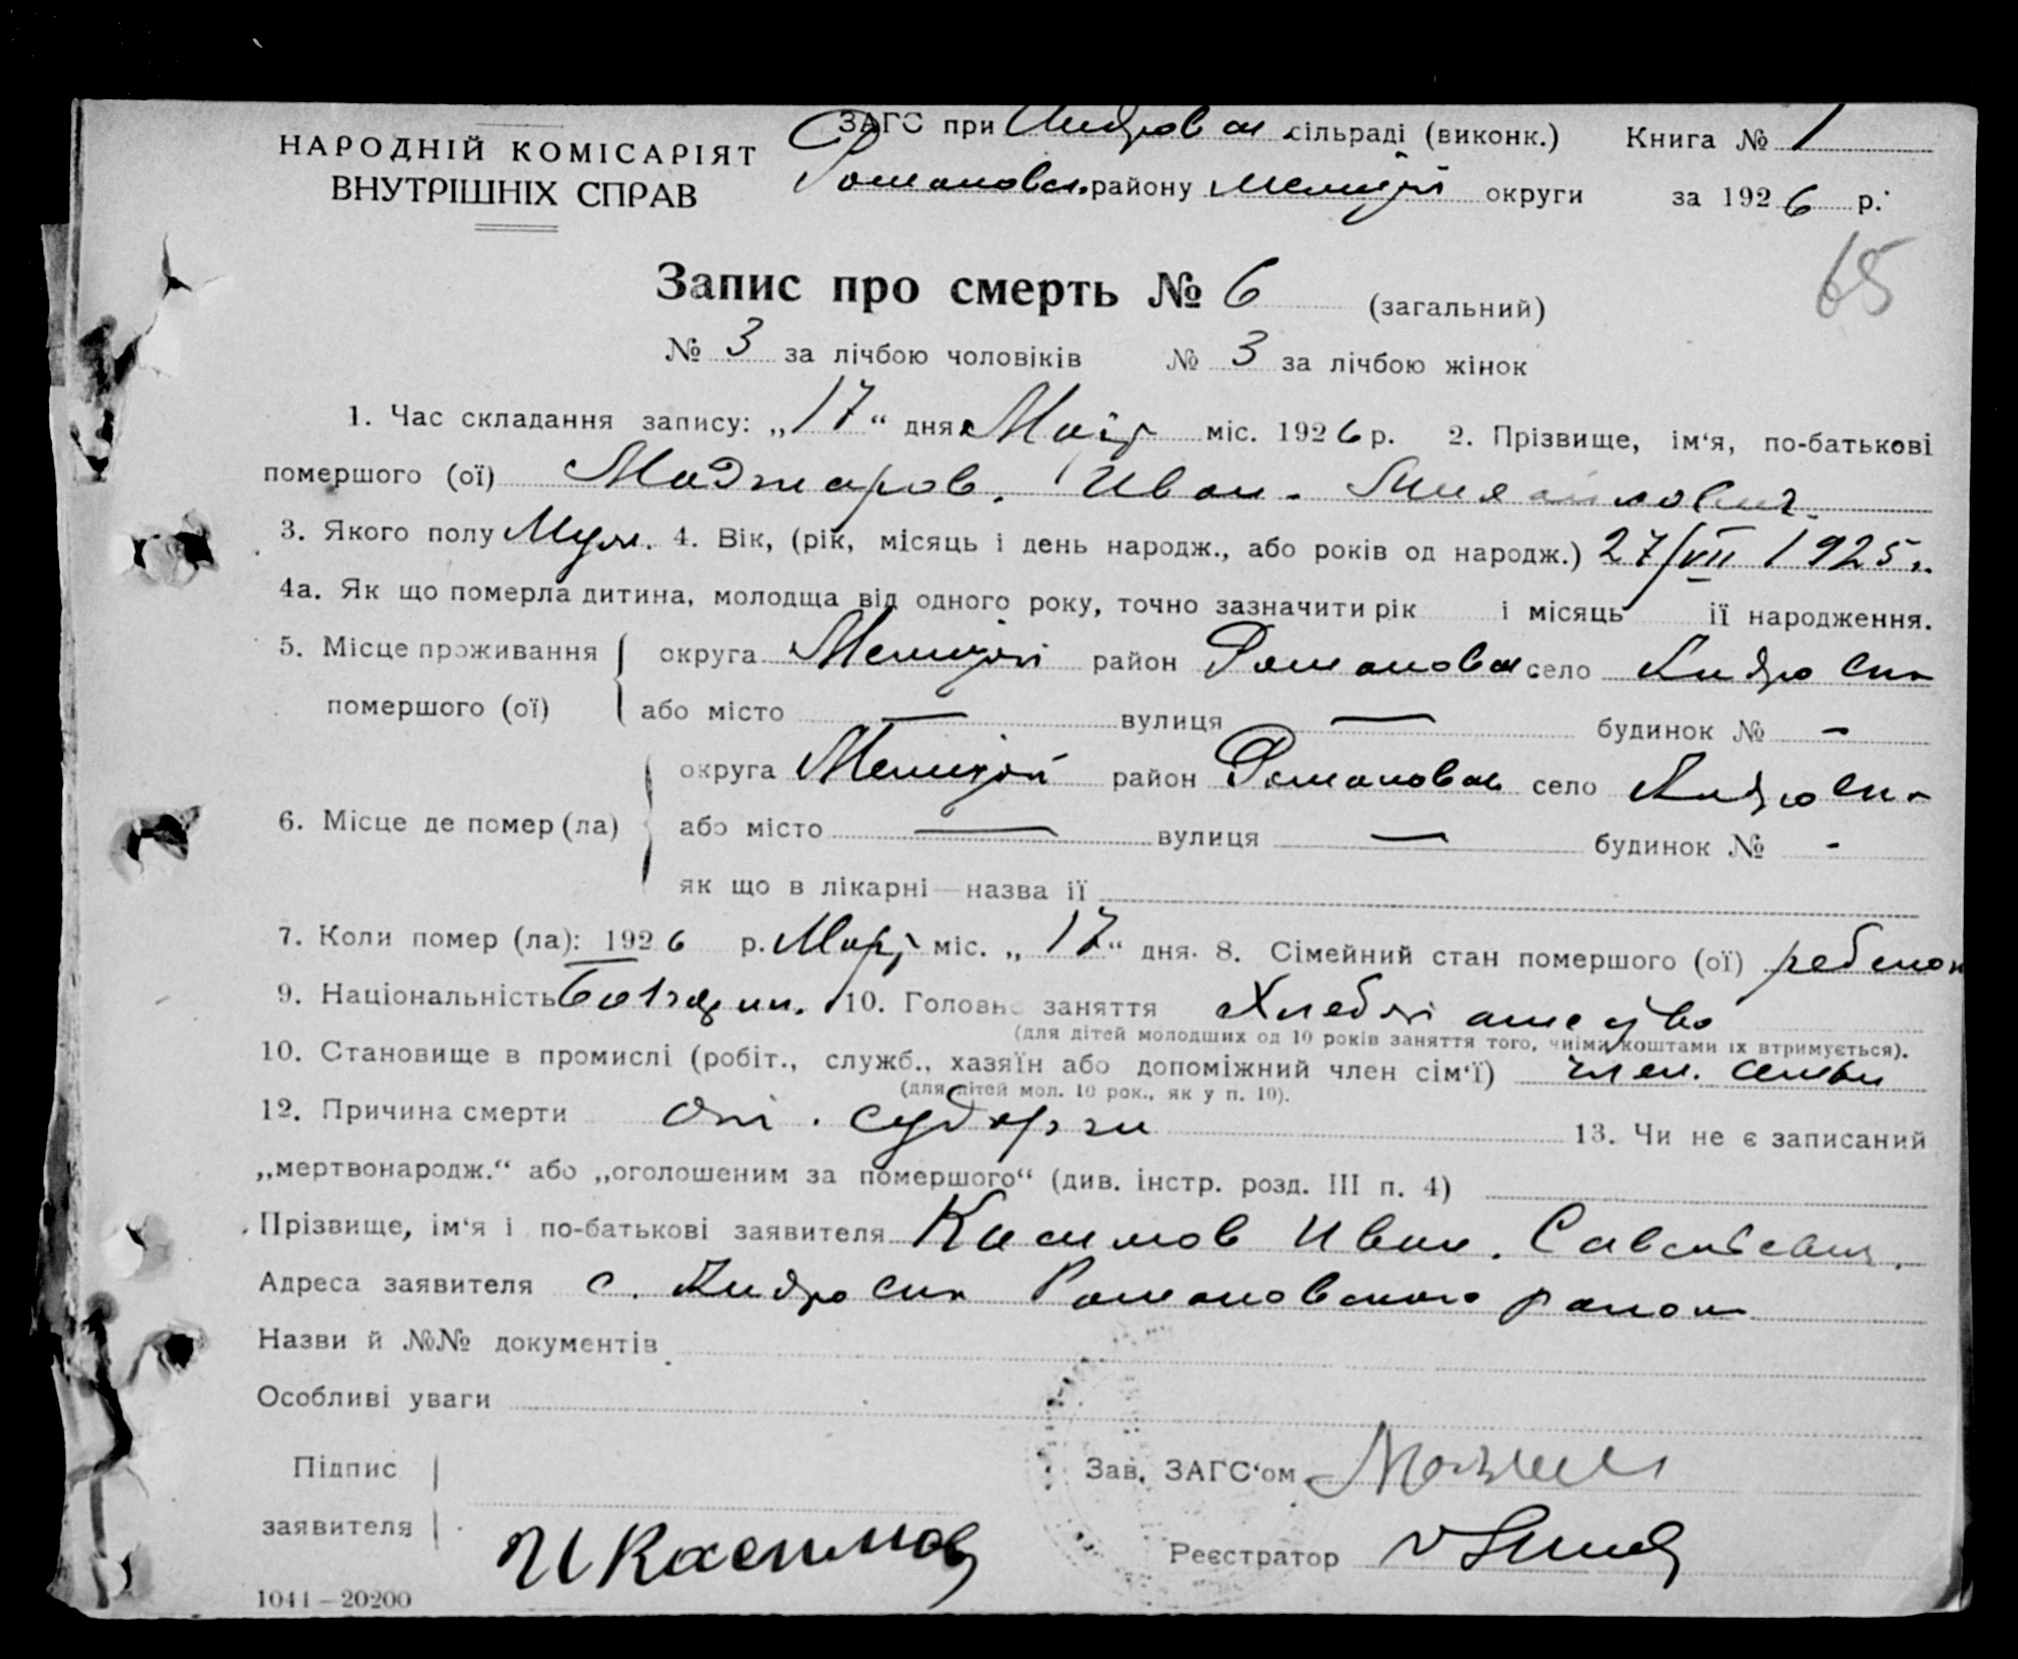 НАРОДНІЙ КОМІСАРІЯТ
ВНУТРІШНІХ СПРАВ
ЗАГС при Андров сільраді (виконк.) Книга № 1
Романовск. району Мелитоп округи за 1926 р.
65
Запис про смерть № 6 (загальний)
№ 3 за лічбою чоловіків № 3 за лічбою жінок
1. Час складання запису: „17“ дня міс. 1926 р. 2. Прізвище, ім‘я, по-батькові
помершого (ої) Маджаров. Иван. Михайлович.
3. Якого полу Муж. 4. Вік, (рік, місяць і день народж., або років од народж.) 27/VII 1925 г.
4а. Як що померла дитина, молодща від одного року, точно зазначити рік і місяць її народження.
5. Місце проживання помершого (ої) округа район Романовск село Андровка
або місто — вулиця — будинок № -
6. Місце де помер (ла) округа район Романовск село Андровка
або місто — вулиця — будинок № -
як що в лікарні—назва її
7. Коли помер (ла): 1926 р. міс. „17“ дня. 8. Сімейний стан помершого (ої) ребенок
9. Національність Болгарин. 10. Головне заняття Хлебопашество
(для дітей молодших од 10 років заняття того, чиїми коштами їх втримується).
10. Становище в промислі (робіт., служб., хазяїн або допоміжний член сім‘ї) член. семьи
(для дітей мол. 10 рок., як у п. 10).
12. Причина смерти от. судорги 13. Чи не є записаний
„мертвонародж.“ або „оголошеним за помершого“ (див. інстр. розд. III п. 4)
Прізвище, ім‘я і по-батькові заявителя Касимов Иван. Савельевич.
Адреса заявителя с. Андровка Романовского района
Назви й №№ документів
Особливі уваги
Підпис заявителя И Касимов
Зав. ЗАГС‘ом
Реєстратор
1041—20200